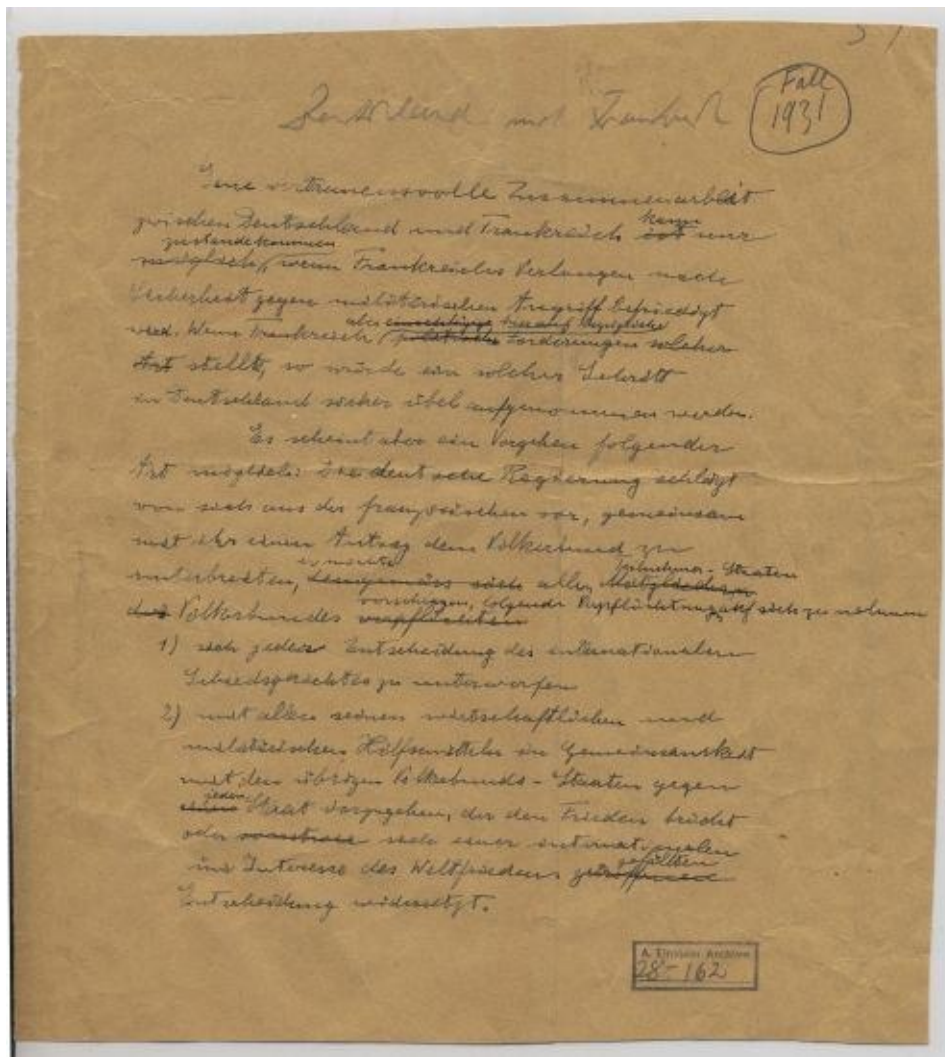 Fall
1931
Deutschland und Frankreich
Eine vertrauensvolle Zusammenarbeit
kann
zwischen Deutschland und Frankreich ist nur
zustandekommen
möglich, wenn Frankreichs Verlangen nach
Sicherheit gegen militärischen Angriff befriedigt
aber
wird. Wenn Frankreich Forderungen solcher
Art stellt, so würde ein solcher Schritt
in Deutschland sicher übel aufgenommen werden.
Es scheint aber ein Vorgehen folgender
Art möglich: Die deutsche Regierung schlägt
von sich aus der französischen vor, gemeinsam
mit ihr einen Antrag dem Völkerbund zu
er möchte Teilnehmer-Staaten
unterbreiten, allen
vorschlagen, folgende Verpflichtung auf sich zu nehmen
des Völkerbundes verpflichten
1) sich jeder Entscheidung des internationalen
Schiedsgerichtes zu unterwerfen
2) mit allen seinen wirtschaftlichen und
militärischen Hilfsmitteln in Gemeinsamkeit
mit den übrigen Völkerbunds-Staaten gegen
jeden
einen Staat vorzugehen, der den Frieden bricht
oder sich einer internationalen
gefällten
im Interesse des Weltfriedens
Entscheidung widersetzt.
A. Einstein Archive
28-162